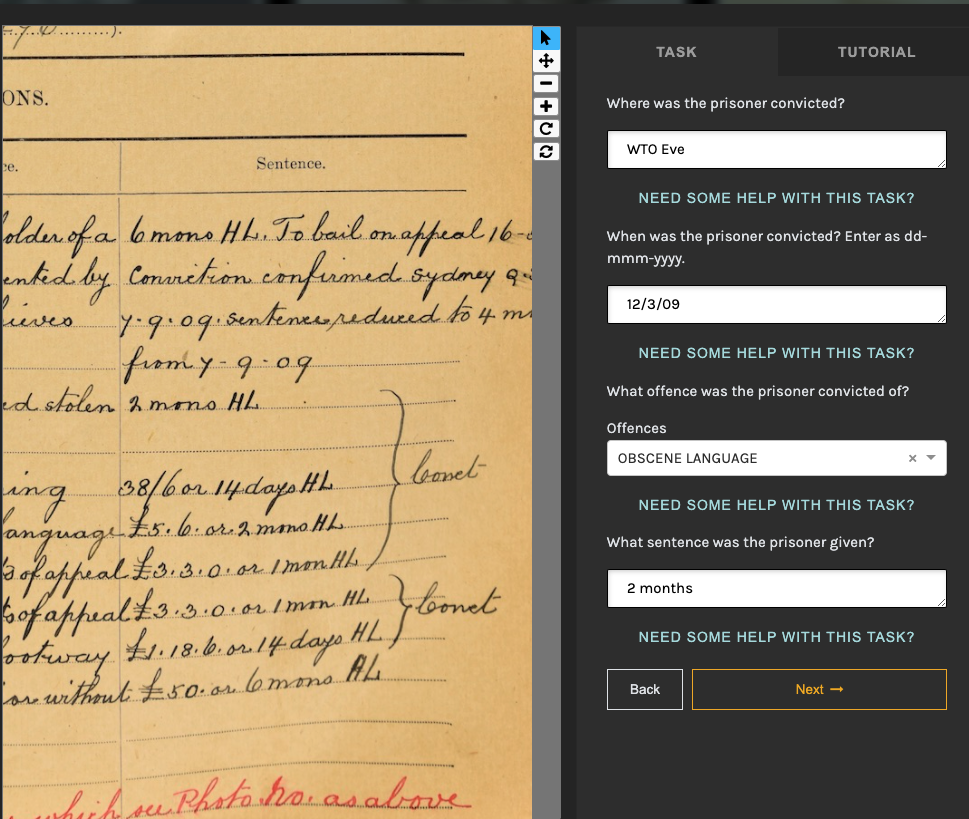 TASK
TUTORIAL
ONS.
ce.
Sentence.
older of a 6 mons HL. To bail on appeal 16-
ented by Conviction confirmed Sydney 9-
ieves 7.9.09. sentence reduced to 4 m
from 7-9-09
ed stolen 2 mons HL
ing 38/6 or 14 days HL
Conct
anguage £5.6. or 2 mons HL
s of appeal £3.3.0. or 1 mon HL
s of appeal £3.3.0. or 1 mon HL Conct
ootway £1.18.6. or 14 days HL
or without £50. or 6 mons HL
which see Photo. No. as above
Where was the prisoner convicted?
WTO Eve
NEED SOME HELP WITH THIS TASK?
When was the prisoner convicted? Enter as dd-
mmm-yyyy.
12/3/09
NEED SOME HELP WITH THIS TASK?
What offence was the prisoner convicted of?
Offences
OBSCENE LANGUAGE
NEED SOME HELP WITH THIS TASK?
What sentence was the prisoner given?
2 months
NEED SOME HELP WITH THIS TASK?
Back
Next →